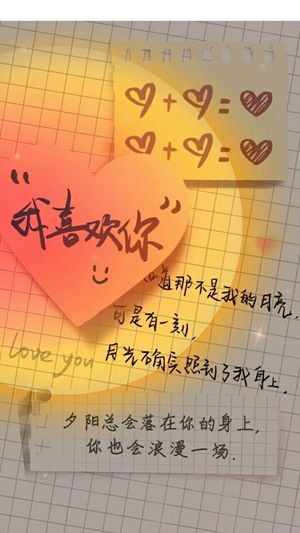 "我喜欢你"
道那不是我的月亮,
可是有一刻,
月光确实照到了我身上.
love you
夕阳总会落在你的身上,
你也会浪漫一场.